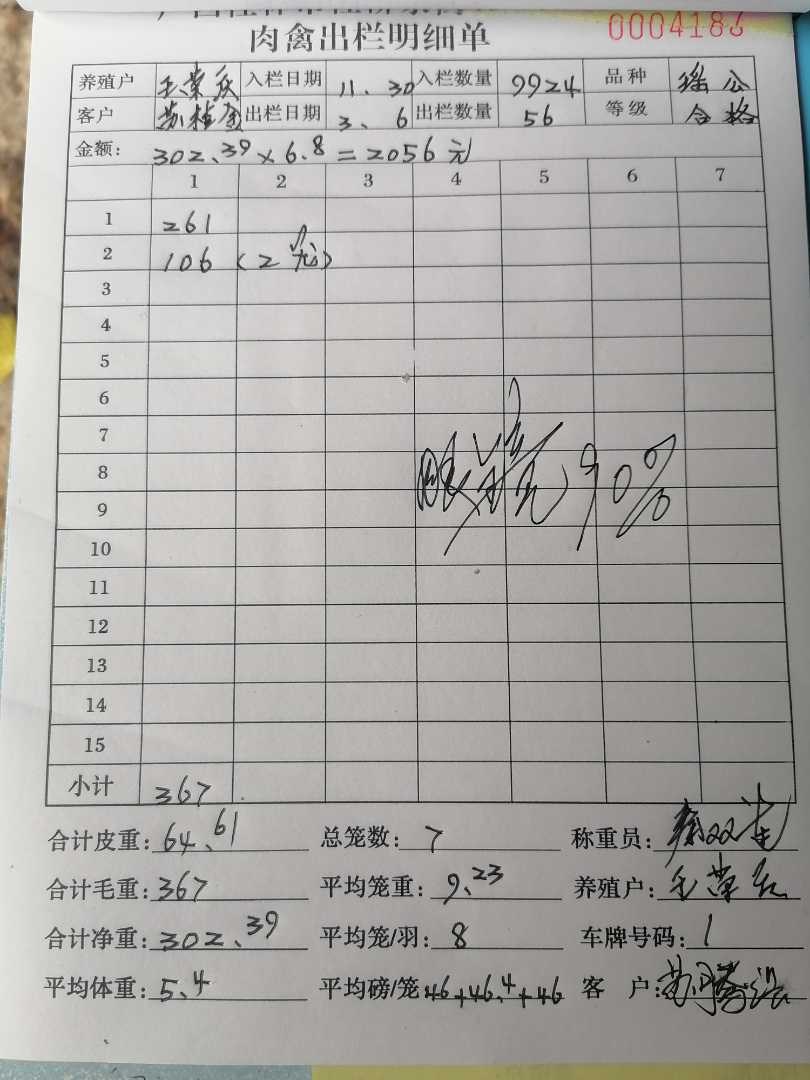 0004186
肉禽出栏明细单
养殖户 毛荣庆 入栏日期 11.30 入栏数量 9924 品种 瑶公
客户 苏桂金 出栏日期 3.6 出栏数量 56 等级 合格
金额: 302.39×6.8=2056元
1 2 3 4 5 6 7
1 261
2 106 (2笼)
3
4
5
6
7
8
9
10
11
12
13
14
15
90%
小计 367
合计皮重: 64.61 总笼数: 7 称重员:
合计毛重: 367 平均笼重: 9.23 养殖户: 毛荣庆
合计净重: 302.39 平均笼/羽: 8 车牌号码: 1
平均体重: 5.4 平均磅/笼: 46+46.4+46 客 户: 苏